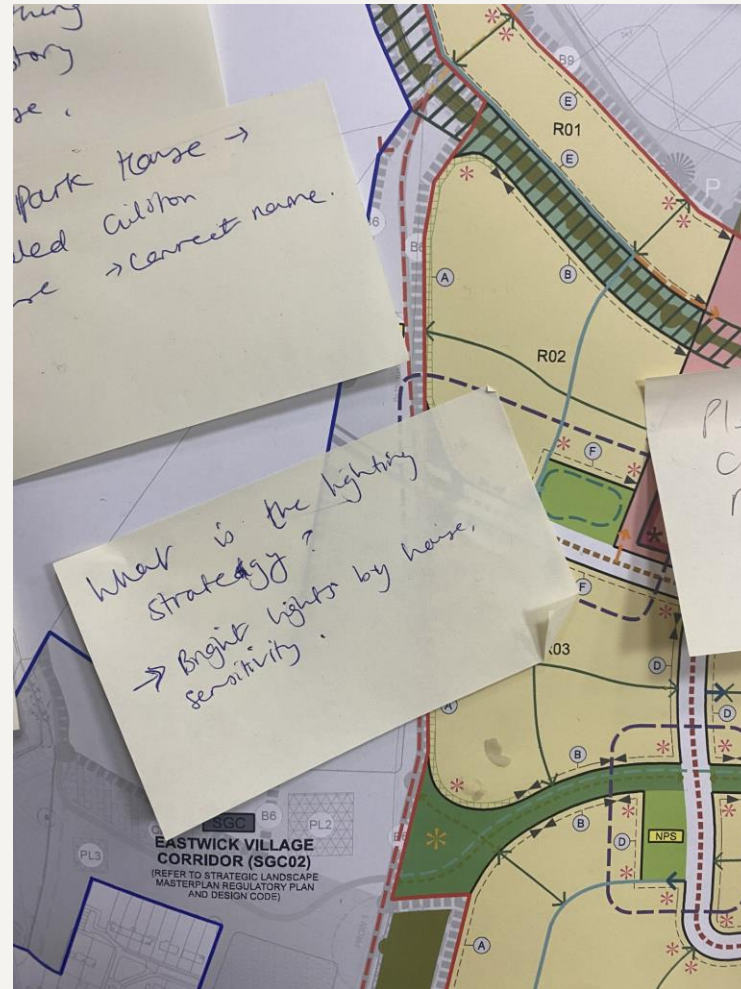 thing
story
Park House →
Culston
→ correct name.
What is the lighting
strategy?
→ Bright lights by house,
sensitivity.
B9
E
R01
E
P
A
B
R02
F
F
R03
D
D
A
B
B
D
NPS
A
SGC
B6
PL2
PL3
EASTWICK VILLAGE
CORRIDOR (SGC02)
(REFER TO STRATEGIC LANDSCAPE
MASTERPLAN REGULATORY PLAN
AND DESIGN CODE)